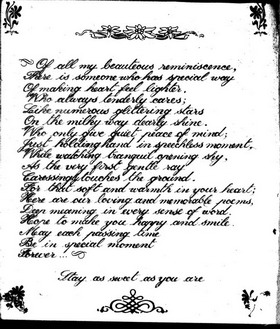 Of all my beauteous reminiscence,
There is someone who has special way
Of making heart feel lighter,
Who always tenderly cares;
Like numerous glittering stars
On the milky way dearly shine.
Who only give quiet peace of mind;
Just holding hand in speechless moment,
While watching tranquil opening sky,
As the very first gentle ray
Caresssingly touches the ground.
For that soft and warmth in your heart;
Here are our loving and memorable poems,
Deep meaning in every sense of word.
Hope to make you happy and smile.
May each passing time
Be in special moment
Forever...
Stay as sweet as you are